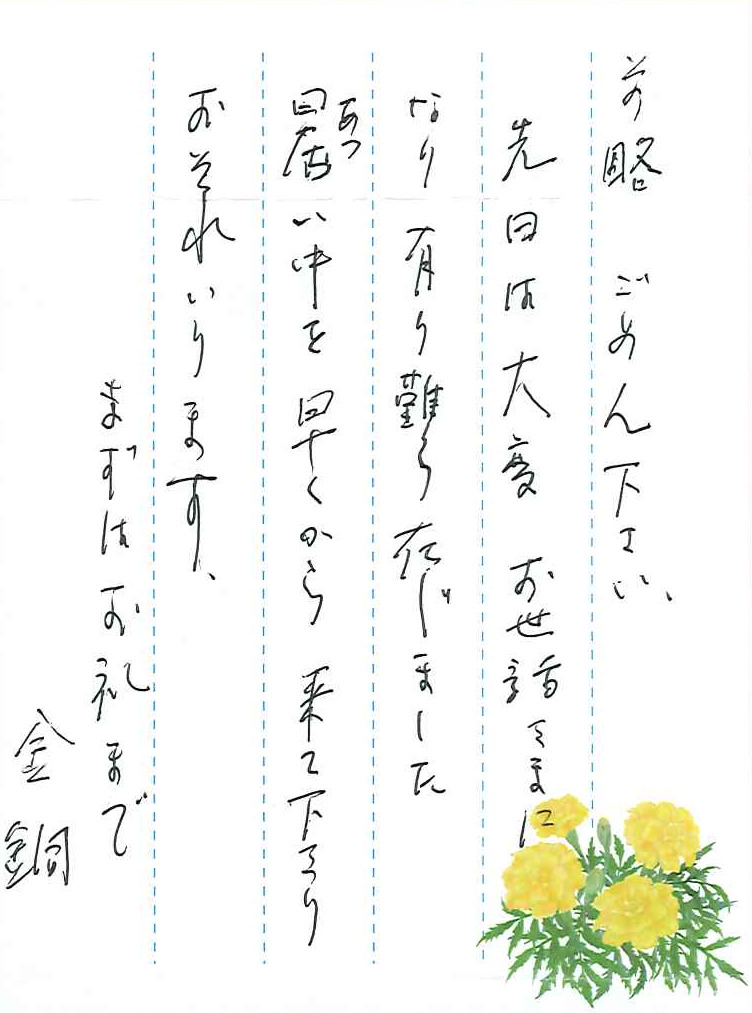 前略 ごめん下さい、
先日は大変 お世話さまに
なり 有り難う 存じました
あつ
暑い中を 早くから 来て下さり
おそれいります、
まずはお礼まで
金銅